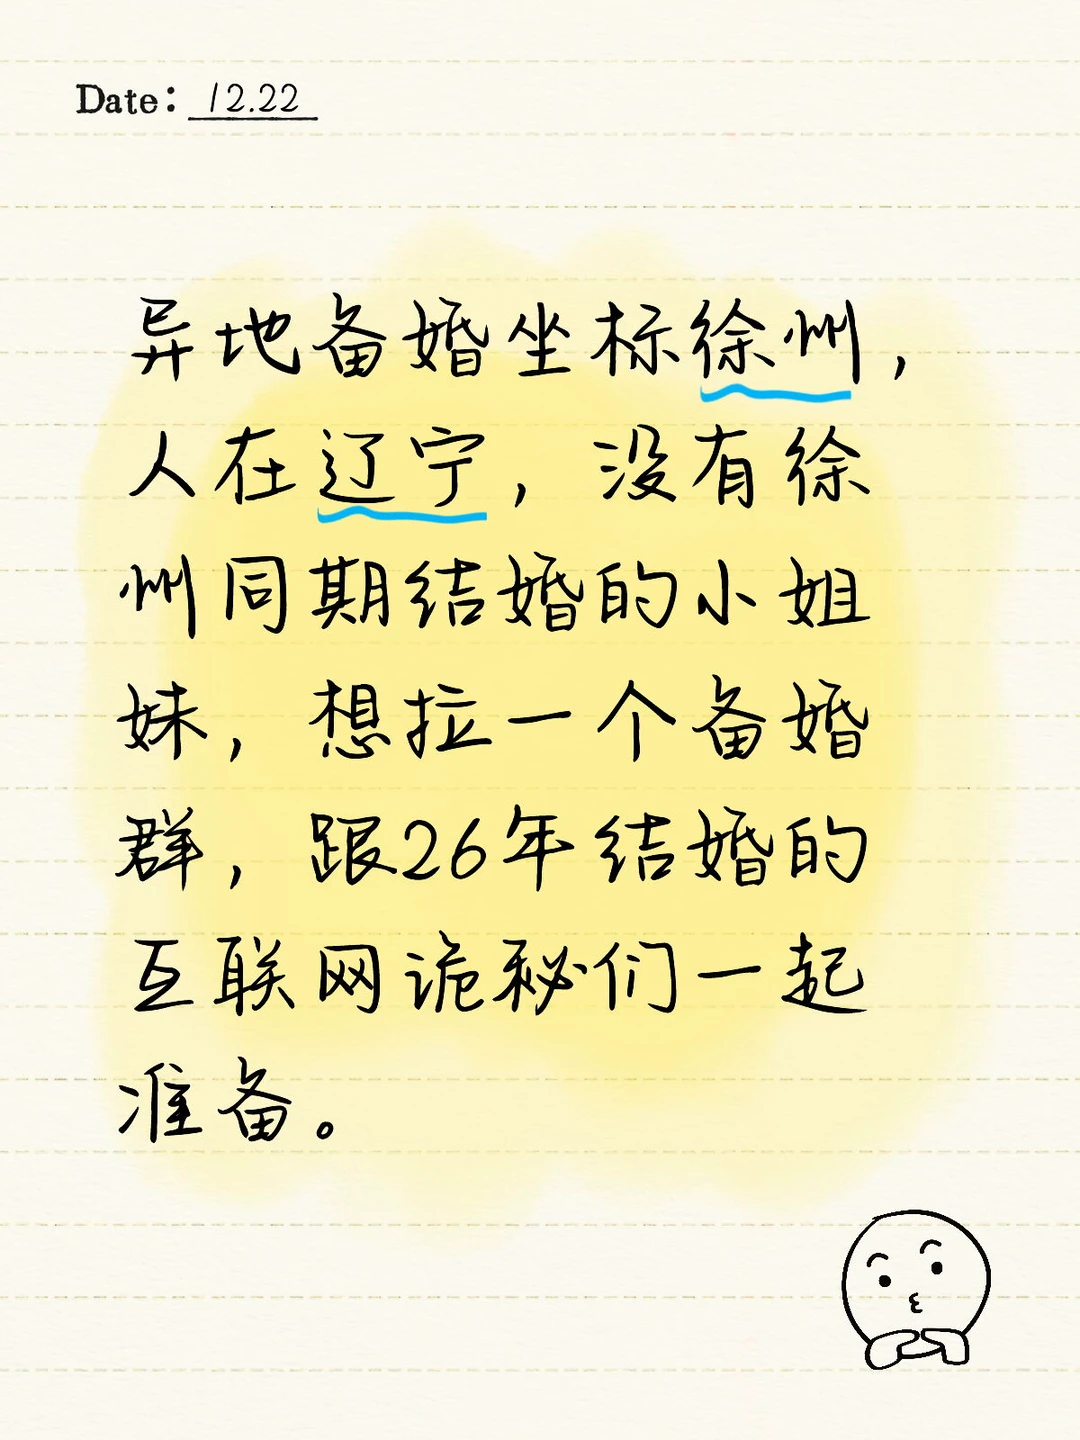 Date: 12.22
异地备婚坐标徐州，
人在辽宁，没有徐
州同期结婚的小姐
妹，想拉一个备婚
群，跟26年结婚的
互联网诡秘们一起
准备。